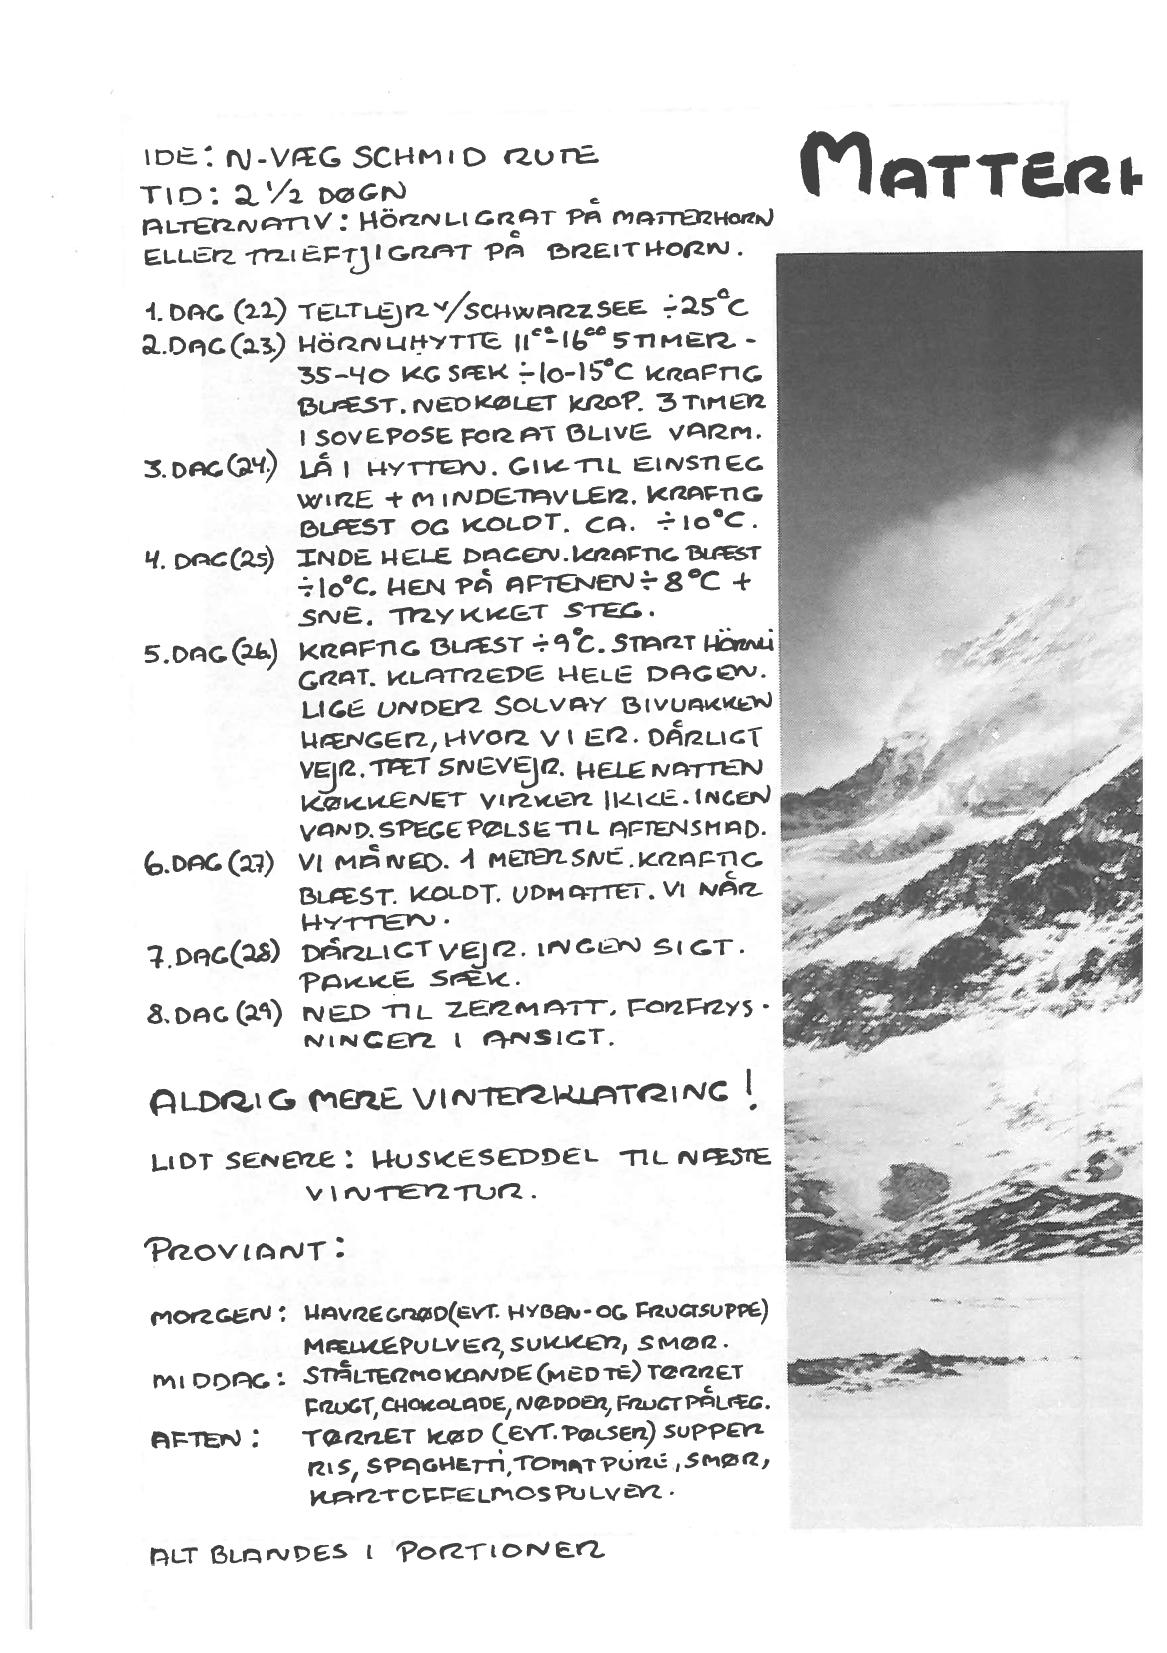 MATTERH
IDE: N-VÆG SCHMID RUTE
TID: 2 1/2 DØGN
ALTERNATIV: HÖRNLIGRAT PÅ MATTERHORN
ELLER TRIEFTJIGRAT PÅ BREITHORN.
1. DAG (22) TELTLEJR V/SCHWARZSEE ÷25°C
2. DAG (23.) HÖRNLIHYTTE 11⁰⁰-16⁰⁰ 5 TIMER -
35-40 KG SÆK ÷10-15°C KRAFTIG
BLÆST. NEDKØLET KROP. 3 TIMER
I SOVEPOSE FOR AT BLIVE VARM.
3. DAG (24.) LÅ I HYTTEN. GIK TIL EINSTIEG
WIRE + MINDETAVLER. KRAFTIG
BLÆST OG KOLDT. CA. ÷10°C.
4. DAG (25) INDE HELE DAGEN. KRAFTIG BLÆST
÷10°C. HEN PÅ AFTENEN ÷8°C +
SNE. TRYKKET STEG.
5. DAG (26.) KRAFTIG BLÆST ÷9°C. START HÖRNLI
GRAT. KLATREDE HELE DAGEN.
LIGE UNDER SOLVAY BIVUAKKEN
HÆNGER, HVOR VI ER. DÅRLIGT
VEJR. TÆT SNEVEJR. HELE NATTEN
KØKKENET VIRKER IKKE. INGEN
VAND. SPEGEPØLSE TIL AFTENSMAD.
6. DAG (27) VI MÅ NED. 1 METER SNE. KRAFTIG
BLÆST. KOLDT. UDMATTET. VI NÅR
HYTTEN.
7. DAG (28) DÅRLIGT VEJR. INGEN SIGT.
PAKKE SÆK.
8. DAG (29) NED TIL ZERMATT. FORFRYS-
NINGER I ANSIGT.
ALDRIG MERE VINTERKLATRING!
LIDT SENERE: HUSKESEDDEL TIL NÆSTE
VINTERTUR.
PROVIANT:
MORGEN: HAVREGRØD (EVT. HYBEN- OG FRUGTSUPPE)
MÆLKEPULVER, SUKKER, SMØR.
MIDDAG: STÅLTERMOKANDE (MED TE) TØRRET
FRUGT, CHOKOLADE, NØDDER, FRUGTPÅLÆG.
AFTEN: TØRRET KØD (EVT. PØLSER) SUPPER
RIS, SPAGHETTI, TOMATPURÉ, SMØR,
KARTOFFELMOSPULVER.
ALT BLANDES I PORTIONER